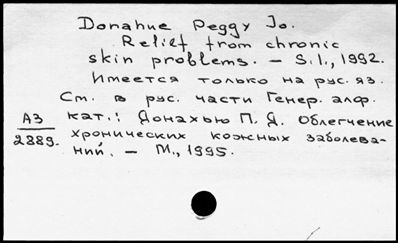 Donahue Peggy Jo.
Relief from chronic
skin problems. – S.l., 1992.
Имеется только на рус. яз.
См. в рус. части Генер. алф.
кат.: Донахью П. Д. Облегчение
хронических кожных заболева-
ний. – М., 1995.
А3
2889.